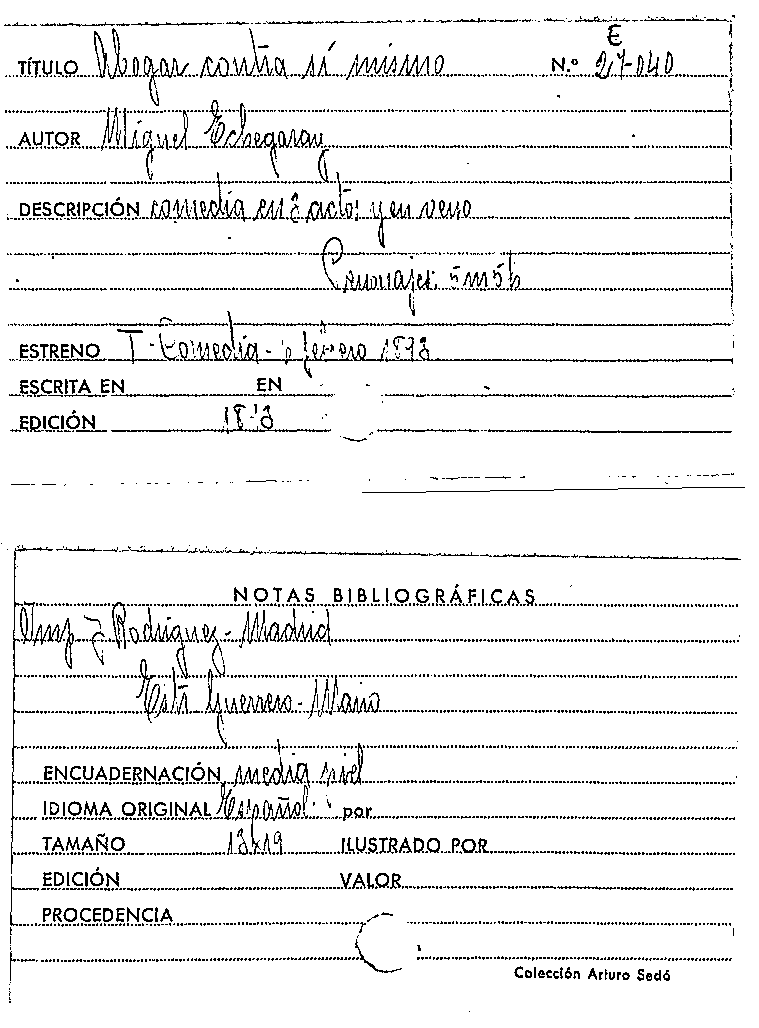 E
TÍTULO Abogar contra sí mismo N.º 27-040
AUTOR Miguel Echegaray
DESCRIPCIÓN comedia en 3 actos y en verso
Personajes: 5m5h
ESTRENO T-Comedia- febrero
ESCRITA EN EN
EDICIÓN
NOTAS BIBLIOGRÁFICAS
Imp J Rodriguez - Madrid
Guerrero - Mario
ENCUADERNACIÓN media piel
IDIOMA ORIGINAL Español por
TAMAÑO 13x19 ILUSTRADO POR
EDICIÓN VALOR
PROCEDENCIA
Colección Arturo Sedó